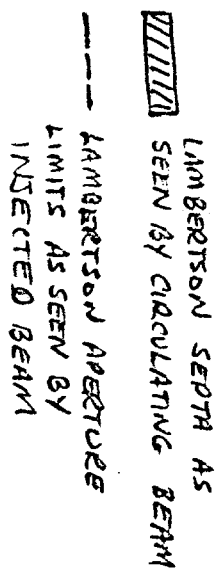 LAMBERTSON SEPTA AS
SEEN BY CIRCULATING BEAM
LAMBERTSON APERTURE
LIMITS AS SEEN BY
INJECTED BEAM